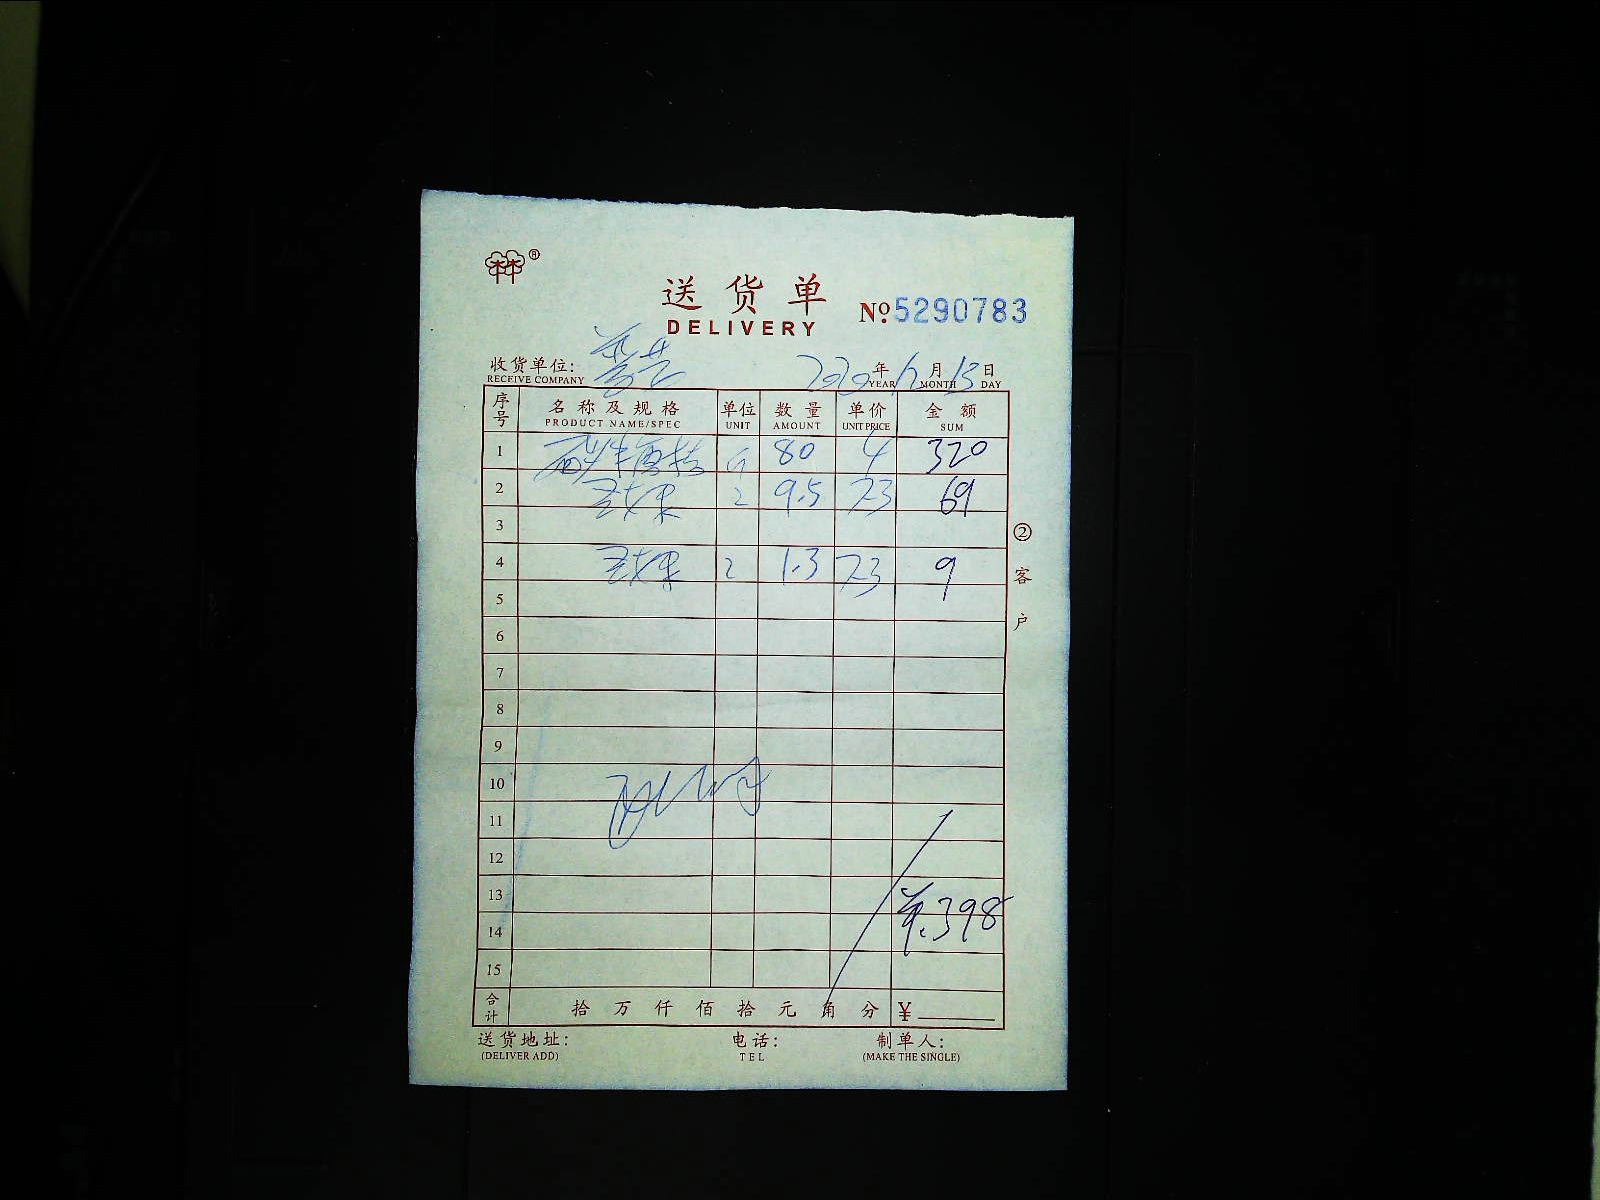 ®
送货单
DELIVERY
№ 5290783
收货单位:
RECEIVE COMPANY
2020年 月15日
YEAR MONTH DAY
序号 名称及规格 单位 数量 单价 金额
PRODUCT NAME/SPEC UNIT AMOUNT UNIT PRICE SUM
1 80 4 320
2 2 9.5 7.3 69
3
4 2 1.3 7.3 9
5
6
7
8
9
10
11
12
13
14 398
15
合计 拾 万 仟 佰 拾 元 角 分 ¥
送货地址: 电话: 制单人:
(DELIVER ADD) TEL (MAKE THE SINGLE)
②客户